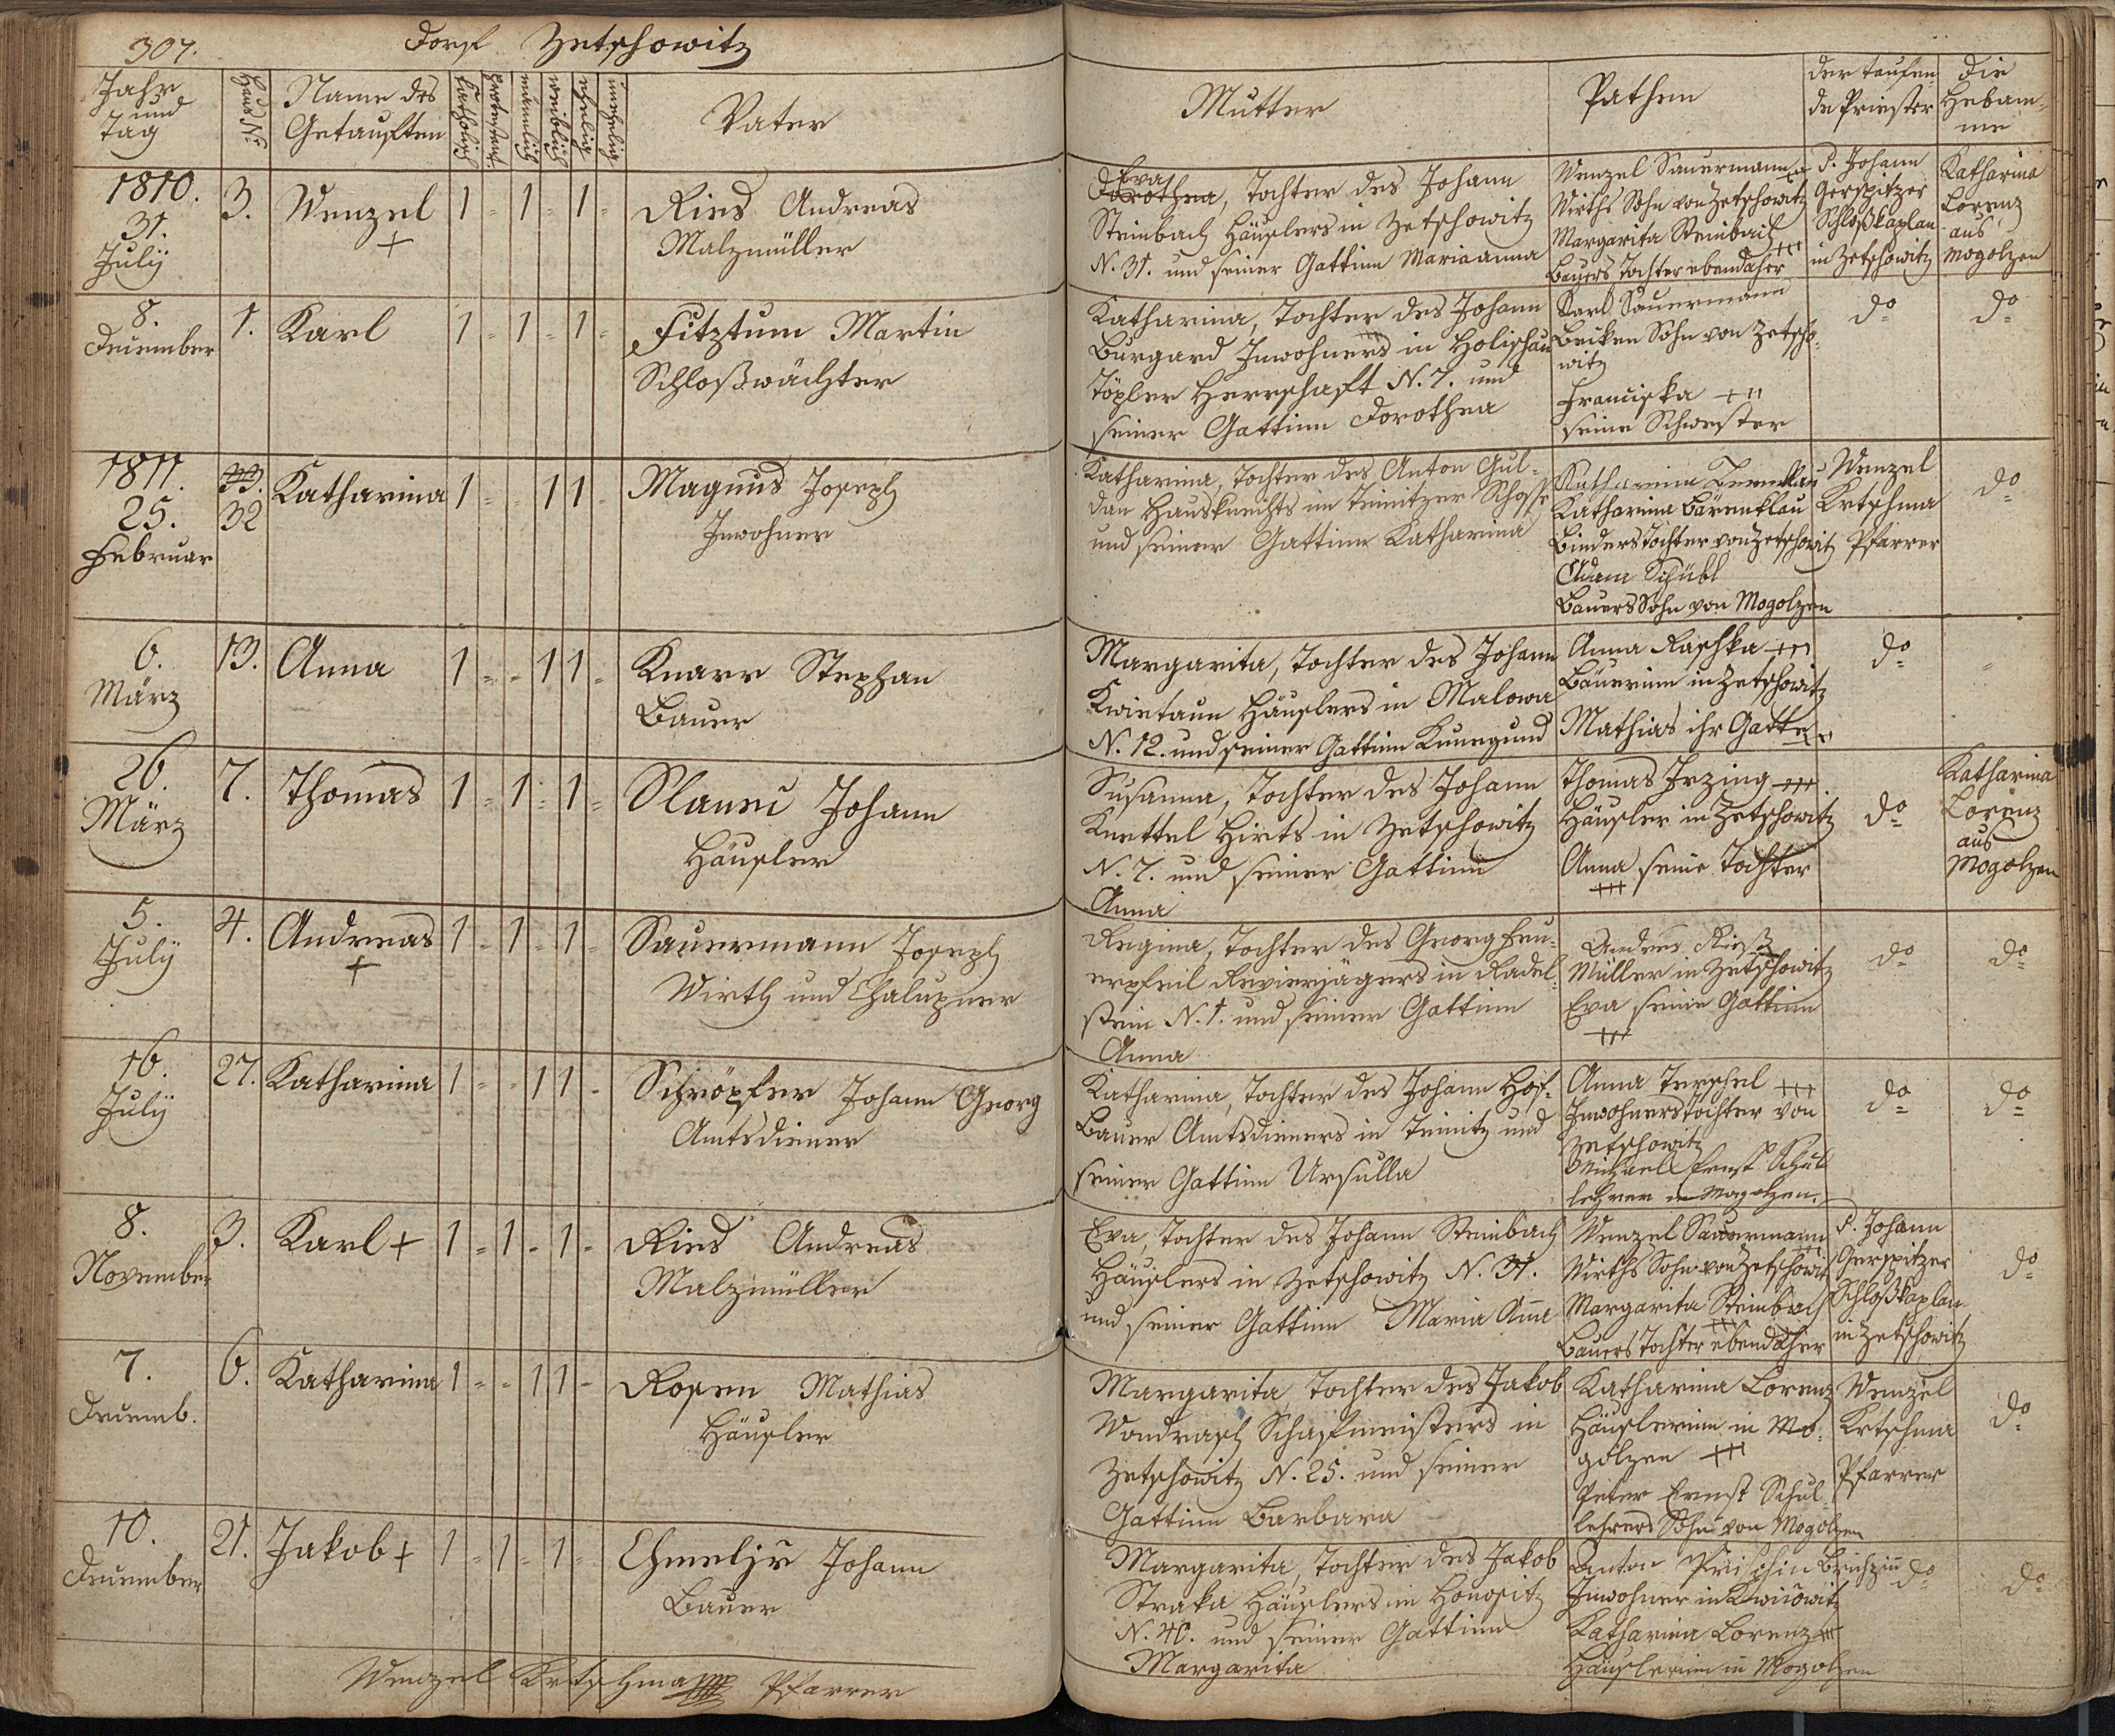 307.
Dorf Zetschowitz
Jahr
und
Tag
Haus Nr.
Name des
Getauften
katholisch
protestant.
männlich
weiblich
ehelig
unehelig
Vater
Mutter
Pathen
der taufen
de Priester
Die
Hebam-
me
1810.
31.
July
3.
Wenzel
+
1 - 1 - 1 -
Ries Andreas
Malzmüller
Eva
Dorothea, Tochter des Johann
Steinbach Häuslers in Zetschowitz
N. 31. und seiner Gattinn Mariaanna
Wenzel Sauermann +++
Wirths Sohn von Zetschowitz
Margarita Steinbach
+++
Bauers Tochter ebendaher
P. Johann
Gerspitzer
Schloßkaplan
in Zetschowitz
Katharina
Lorenz
aus
Mogolzen
8.
December
1.
Karl
1 - 1 - 1 -
Fitztum Martin
Schloßwächter
Katharina, Tochter des Johann
Burgard Inwohners in Holischau
Töpler Herrschaft N. 7. und
seiner Gattinn Dorothea
Karl Sauermann
Becken Sohn von Zetscho-
witz
Franciska +++
seine Schwester
do
do
1811.
25.
Februar
33.
32
Katharina
1 - - 1 1 -
Magnus Joseph
Inwohner
Katharina, Tochter des Anton Gul-
dan Hausknechts im Teinitzer Schosse
und seiner Gattinn Katharina
Katharina
Katharina Bärenklau
Binders Tochter von Zetschowitz
Adam Schübl
Bauers Sohn von Mogolzen
Wenzel
Krtschma
Pfarrer
do
6.
März
13.
Anna
1 - - 1 1 -
Knarr Stephan
Bauer
Margarita, Tochter des Johann
Kwietaun Häuslers in Malowa
N. 12. und seiner Gattinn Kunegund
Anna Raschka +++
Bäuerinn in Zetschowitz
Mathias ihr Gatte
+++
do
-
26.
März
7.
Thomas
1 - 1 - 1 -
Slaneci Johann
Häusler
Susanna, Tochter des Johann
Knettel Hirts in Zetschowitz
N. 7. und seiner Gattinn
Anna
Thomas Irzing +++
Häusler in Zetschowitz
Anna seine Tochter
+++
do
Katharina
Lorenz
aus
Mogolzen
5.
July
4.
Andreas
+
1 - 1 - 1 -
Sauermann Joseph
Wirth und Chalupner
Regina, Tochter des Georg Feu-
erpfeil Revierjägers in Radel-
stein N. 1. und seiner Gattinn
Anna
Andreas Rieß
Müller in Zetschowitz
Eva seine Gattinn
+++
do
do
16.
July
27.
Katharina
1 - - 1 1 -
Schröpfer Johann Georg
Amtsdiener
Katharina, Tochter des Johann Hof-
Bauer Amtsdieners in Teinitz und
seiner Gattinn Ursulla
Anna Terschel +++
Inwohners Tochter von
Zetschowitz
Michael Ernst Schul
lehrer in Mogolzen.
do
do
8.
November
3.
Karl +
1 - 1 - 1 -
Ries Andreas
Malzmüller
Eva, Tochter des Johann Steinbach
Häuslers in Zetschowitz N. 31.
und seiner Gattinn Maria Aña
Wenzel Sauermann
+++
Wirths Sohn von Zetschowitz
Margarita Steinbach
+++
Bauers Tochter ebendaher
P. Johann
Gerspitzer
Schloßkaplan
in Zetschowitz
do
7.
Decemb.
6.
Katharina
1 - - 1 1 -
Rosen Mathias
Häusler
Margarita, Tochter des Jakob
Wondrasch Schafmeisters in
Zetschowitz N. 25. und seiner
Gattinn Barbara
Katharina Lorenz
Häuslerinn in Mo-
golzen +++
Peter Ernst Schul-
lehrers Sohn von Mogolzen
Wenzel
Krtschma
Pfarrer
do
10.
December
21.
Jakob +
1 - 1 - 1 -
Chmeljr Johann
Bauer
Margarita, Tochter des Jakob
Straka Häuslers in Honositz
N. 40. und seiner Gattinn
Margarita
Anton
Inwohner in Kwičowitz
Katharina Lorenz +++
Häuslerinn in Mogolzen
do
do
Wenzel Krtschma Pfarrer